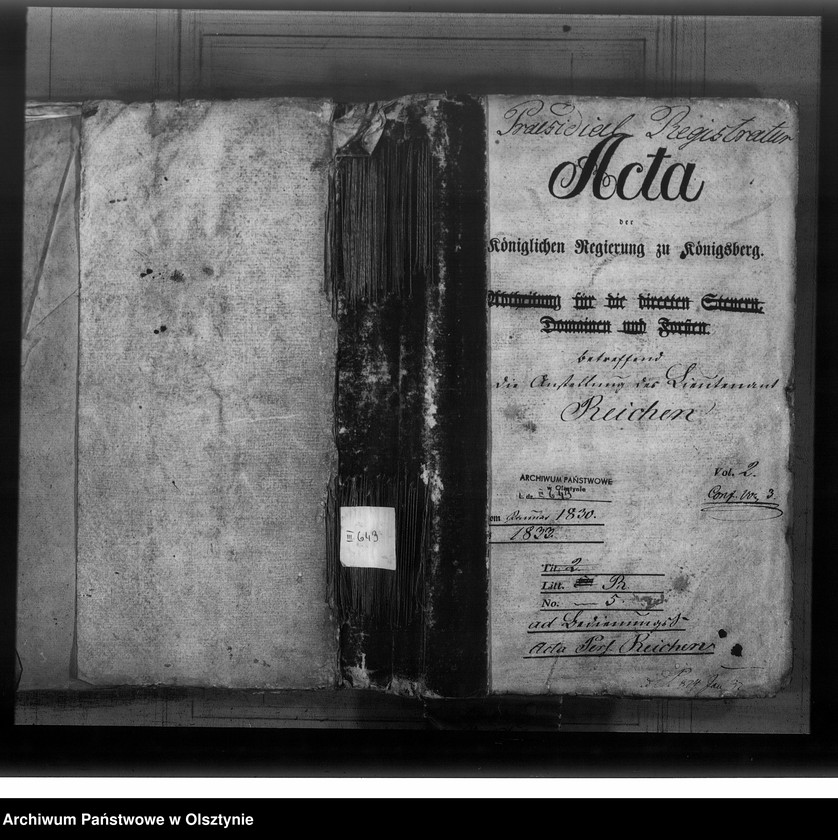 Præsidial Registratur
Acta
der
Königlichen Regierung zu Königsberg.
Abtheilung für die directen Steuern,
Domainen und Forsten.
betreffend
die Anstellung des Lieutenant
Reichen
Vol. 2.
ARCHIWUM PAŃSTWOWE
w Olsztynie
III 643
Januar 1830.
1833.
III 643
Tit. 2
Litt. R
No. 5
ad Bedienungs-
Acta Pers Reichen
Archiwum Państwowe w Olsztynie